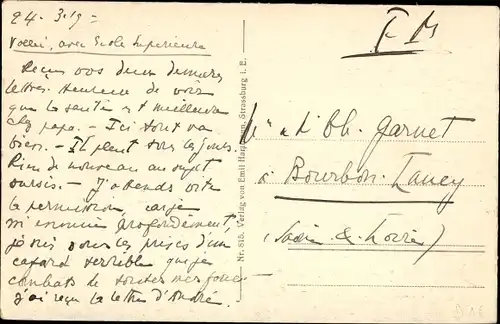 24-3-19 =
Voilà, avec Ecole Supérieure
Reçu vos deux dernières
lettres. Heureux de voir
que la santé est meilleure
chez papa. - Ici tout va
bien. - Il pleut tous les jours.
Rien de nouveau au sujet
sursis. - J'attends vite
la permission, car je
m'ennuie profondément,
je suis sous les prises d'un
cafard terrible que je
combats de toutes mes forces
j'ai reçu la lettre d'André.
Nr. 815. Verlag von Emil Hartmann, Strassburg i. E.
F M
Garnet
à Bourbon-Lancy
(Saône & Loire)